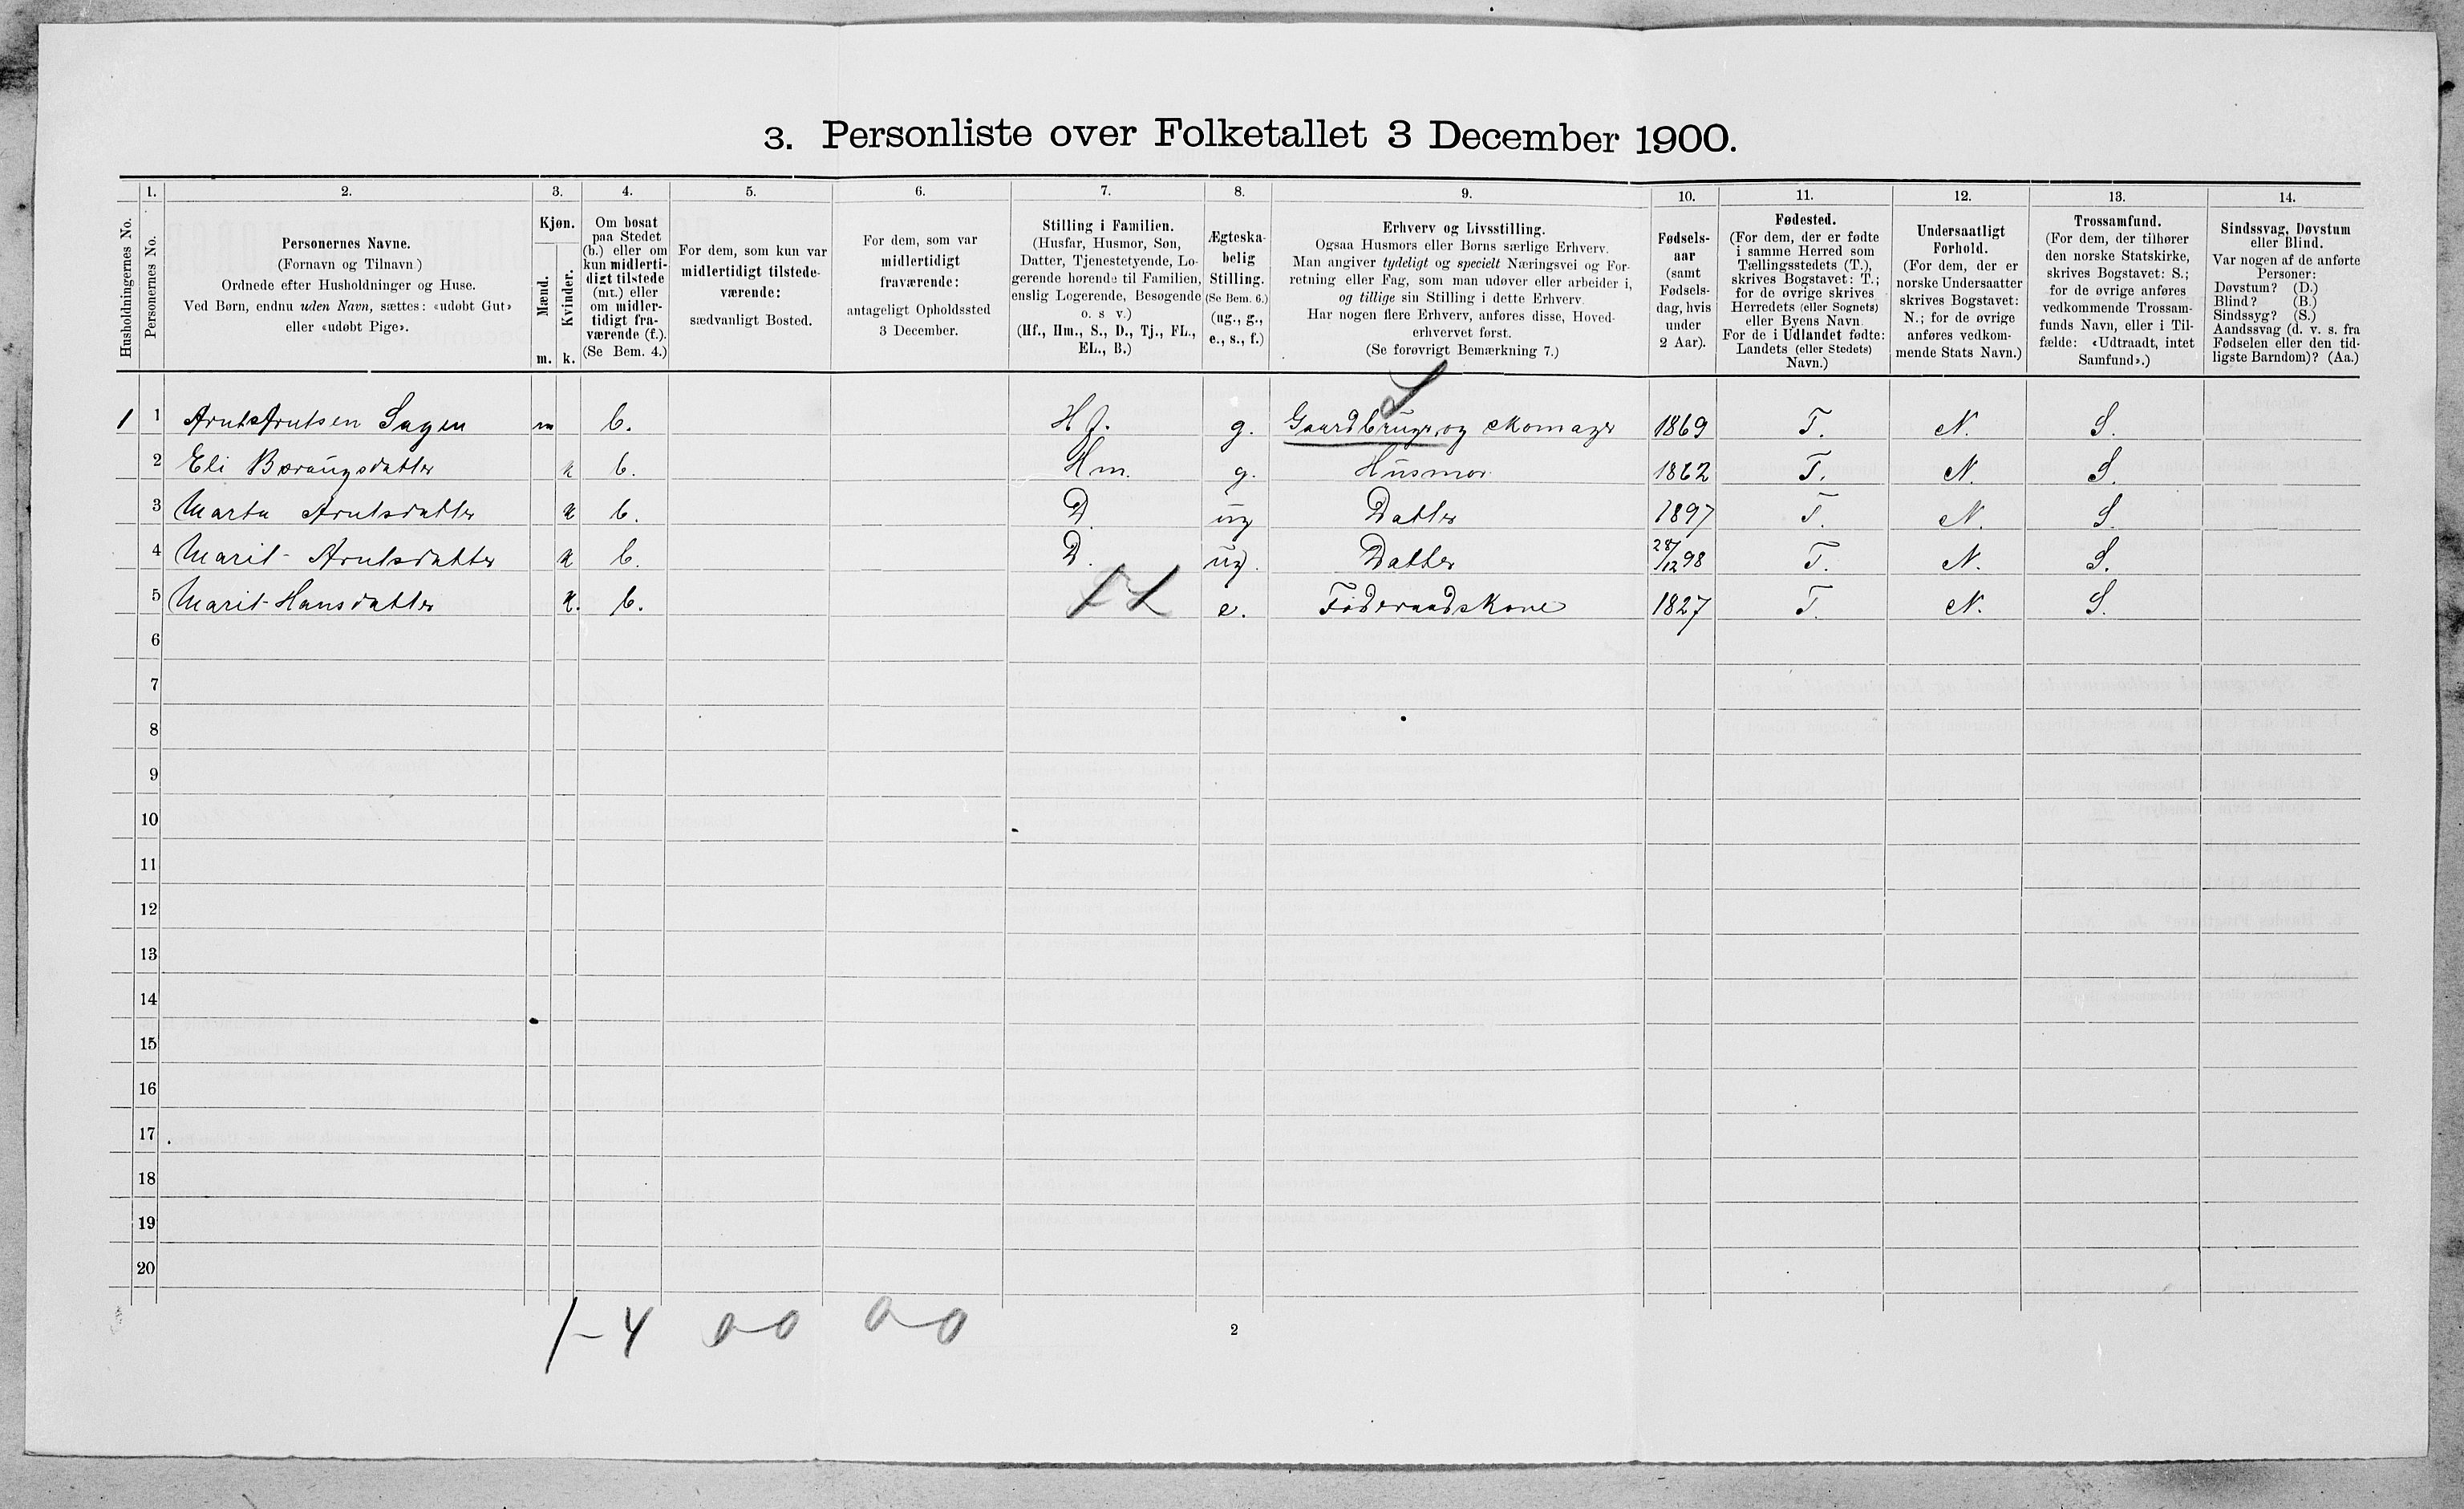 3. Personliste over Folketallet 3 December 1900.
1. 2. 3. 4. 5. 6. 7. 8. 9. 10. 11. 12. 13. 14.
Husholdningernes No.
Personernes No.
Personernes Navne.
(Fornavn og Tilnavn)
Ordnede efter Husholdninger og Huse.
Ved Børn, endnu uden Navn, sættes: «udøbt Gut»
eller «udøbt Pige».
Kjøn.
Mænd.
Kvinder.
m. k.
Om bosat
paa Stedet
(b.) eller om
kun midlerti-
digt tilstede
(mt.) eller
om midler-
tidigt fra-
værende (f.).
(Se Bem. 4.)
For dem, som kun var
midlertidigt tilstede-
værende:
sædvanligt Bosted.
For dem, som var
midlertidigt
fraværende:
antageligt Opholdssted
3 December.
Stilling i Familien.
(Husfar, Husmor, Søn,
Datter, Tjenestetyende, Lo-
gerende hørende til Familien,
enslig Logerende, Besøgende
o. s v.)
(Hf., Hm., S., D., Tj., FL.,
EL., B.)
Ægteska-
belig
Stilling.
(Se Bem. 6.)
(ug., g.,
e., s., f.)
Erhverv og Livsstilling.
Ogsaa Husmors eller Børns særlige Erhverv.
Man angiver tydeligt og specielt Næringsvei og For-
retning eller Fag, som man udøver eller arbeider i,
og tillige sin Stilling i dette Erhverv.
Har nogen flere Erhverv, anføres disse, Hoved-
erhvervet først.
(Se forøvrigt Bemærkning 7.)
Fødsels-
aar
(samt
Fødsels-
dag, hvis
under
2 Aar).
Fødested.
(For dem, der er fødte
i samme Herred som
Tællingsstedets (T.),
skrives Bogstavet: T.;
for de øvrige skrives
Herredets (eller Sognets)
eller Byens Navn.
For de i Udlandet fødte:
Landets (eller Stedets)
Navn.)
Undersaatligt
Forhold.
(For dem, der er
norske Undersaatter
skrives Bogstavet:
N.; for de øvrige
anføres vedkom-
mende Stats Navn.)
Trossamfund.
(For dem, der tilhører
den norske Statskirke,
skrives Bogstavet: S.;
for de øvrige anføres
vedkommende Trossam-
funds Navn, eller i Til-
fælde: «Udtraadt, intet
Samfund».)
Sindssvag, Døvstum
eller Blind.
Var nogen af de anførte
Personer:
Døvstum? (D.)
Blind? (B.)
Sindssyg? (S.)
Aandssvag (d. v. s. fra
Fødselen eller den tid-
ligste Barndom)? (Aa.)
1 1 Arnt Arntsen Sagen m b. Hf. g. Gaardbruger og Skomager 1869 T. N. S.
2 Eli Børaugsdatter k b. Hm. g. Husmor 1862 T. N. S.
3 Marta Arntsdatter k b. D. ug Datter 1897 T. N. S.
4 Marit Arntsdatter k b. D. ug. Datter 28/12 98 T. N. S.
5 Marit Hansdatter k. b. FL e. Føderaadskone 1827 T. N. S.
6
7
8
9
10
11
12
13
14
15
16
17
18
19
20
1-4 0-0 0-0
2